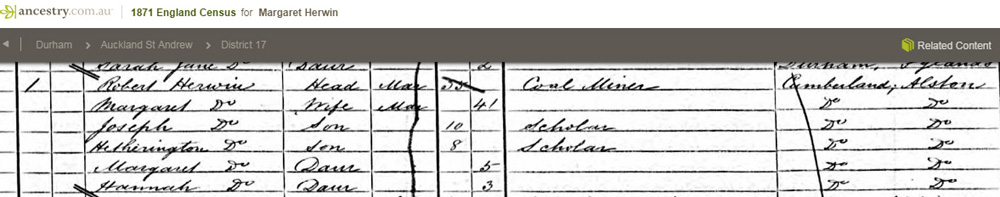 ancestry.com.au 1871 England Census for Margaret Herwin
Durham Auckland St Andrew District 17 Related Content
Sarah Jane Do Daur 2 Durham,
1 Robert Herwin Head Mar Coal Miner Cumberland, Alston
Margaret Do Wife Mar 41 Do Do
Joseph Do Son 10 Scholar Do Do
Hetherington Do Son 8 Scholar Do Do
Margaret Do Daur 5 Do Do
Hannah Do Daur 3 Do Do